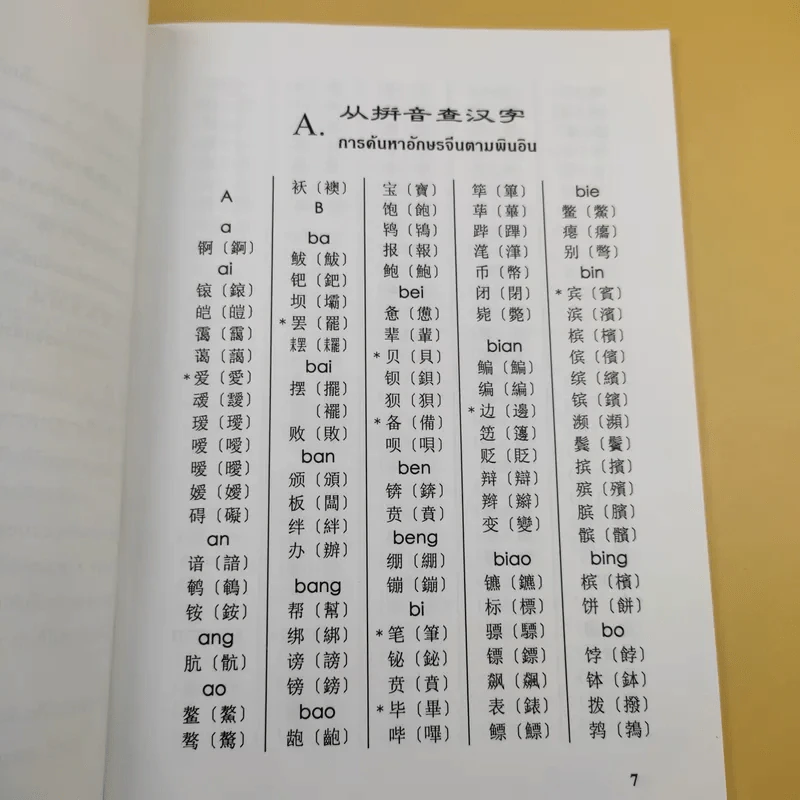 A. 从拼音查汉字
การค้นหาอักษรจีนตามพินอิน
A
a
锕（錒）
ai
锿（鎄）
皑（皚）
霭（靄）
蔼（藹）
*爱（愛）
叆（靉）
瑷（璦）
嗳（噯）
暧（曖）
嫒（嬡）
碍（礙）
an
谙（諳）
鹌（鵪）
铵（銨）
ang
肮（骯）
ao
鳌（鰲）
骜（驁）
袄（襖）
B
ba
鲅（鮁）
钯（鈀）
坝（壩）
*罢（罷）
耙（䎱）
bai
摆（擺）
（襬）
败（敗）
ban
颁（頒）
板（闆）
绊（絆）
办（辦）
bang
帮（幫）
绑（綁）
谤（謗）
镑（鎊）
bao
龅（齙）
宝（寶）
饱（飽）
鸨（鴇）
报（報）
鲍（鮑）
bei
惫（憊）
辈（輩）
*贝（貝）
钡（鋇）
狈（狽）
*备（備）
呗（唄）
ben
锛（錛）
贲（賁）
beng
绷（綳）
镚（鏰）
bi
*笔（筆）
铋（鉍）
贲（賁）
*毕（畢）
哔（嗶）
筚（篳）
荜（蓽）
跸（蹕）
滗（潷）
币（幣）
闭（閉）
毙（斃）
bian
鳊（鯿）
编（編）
*边（邊）
笾（籩）
贬（貶）
辩（辯）
辫（辮）
变（變）
biao
镳（鑣）
标（標）
骠（驃）
镖（鏢）
飙（飆）
表（錶）
鳔（鰾）
bie
鳖（鱉）
瘪（癟）
别（彆）
bin
*宾（賓）
滨（濱）
槟（檳）
傧（儐）
缤（繽）
镔（鑌）
濒（瀕）
鬓（鬢）
摈（擯）
殡（殯）
膑（臏）
髌（髕）
bing
槟（檳）
饼（餅）
bo
饽（餑）
钵（鉢）
拨（撥）
鹁（鵓）
7